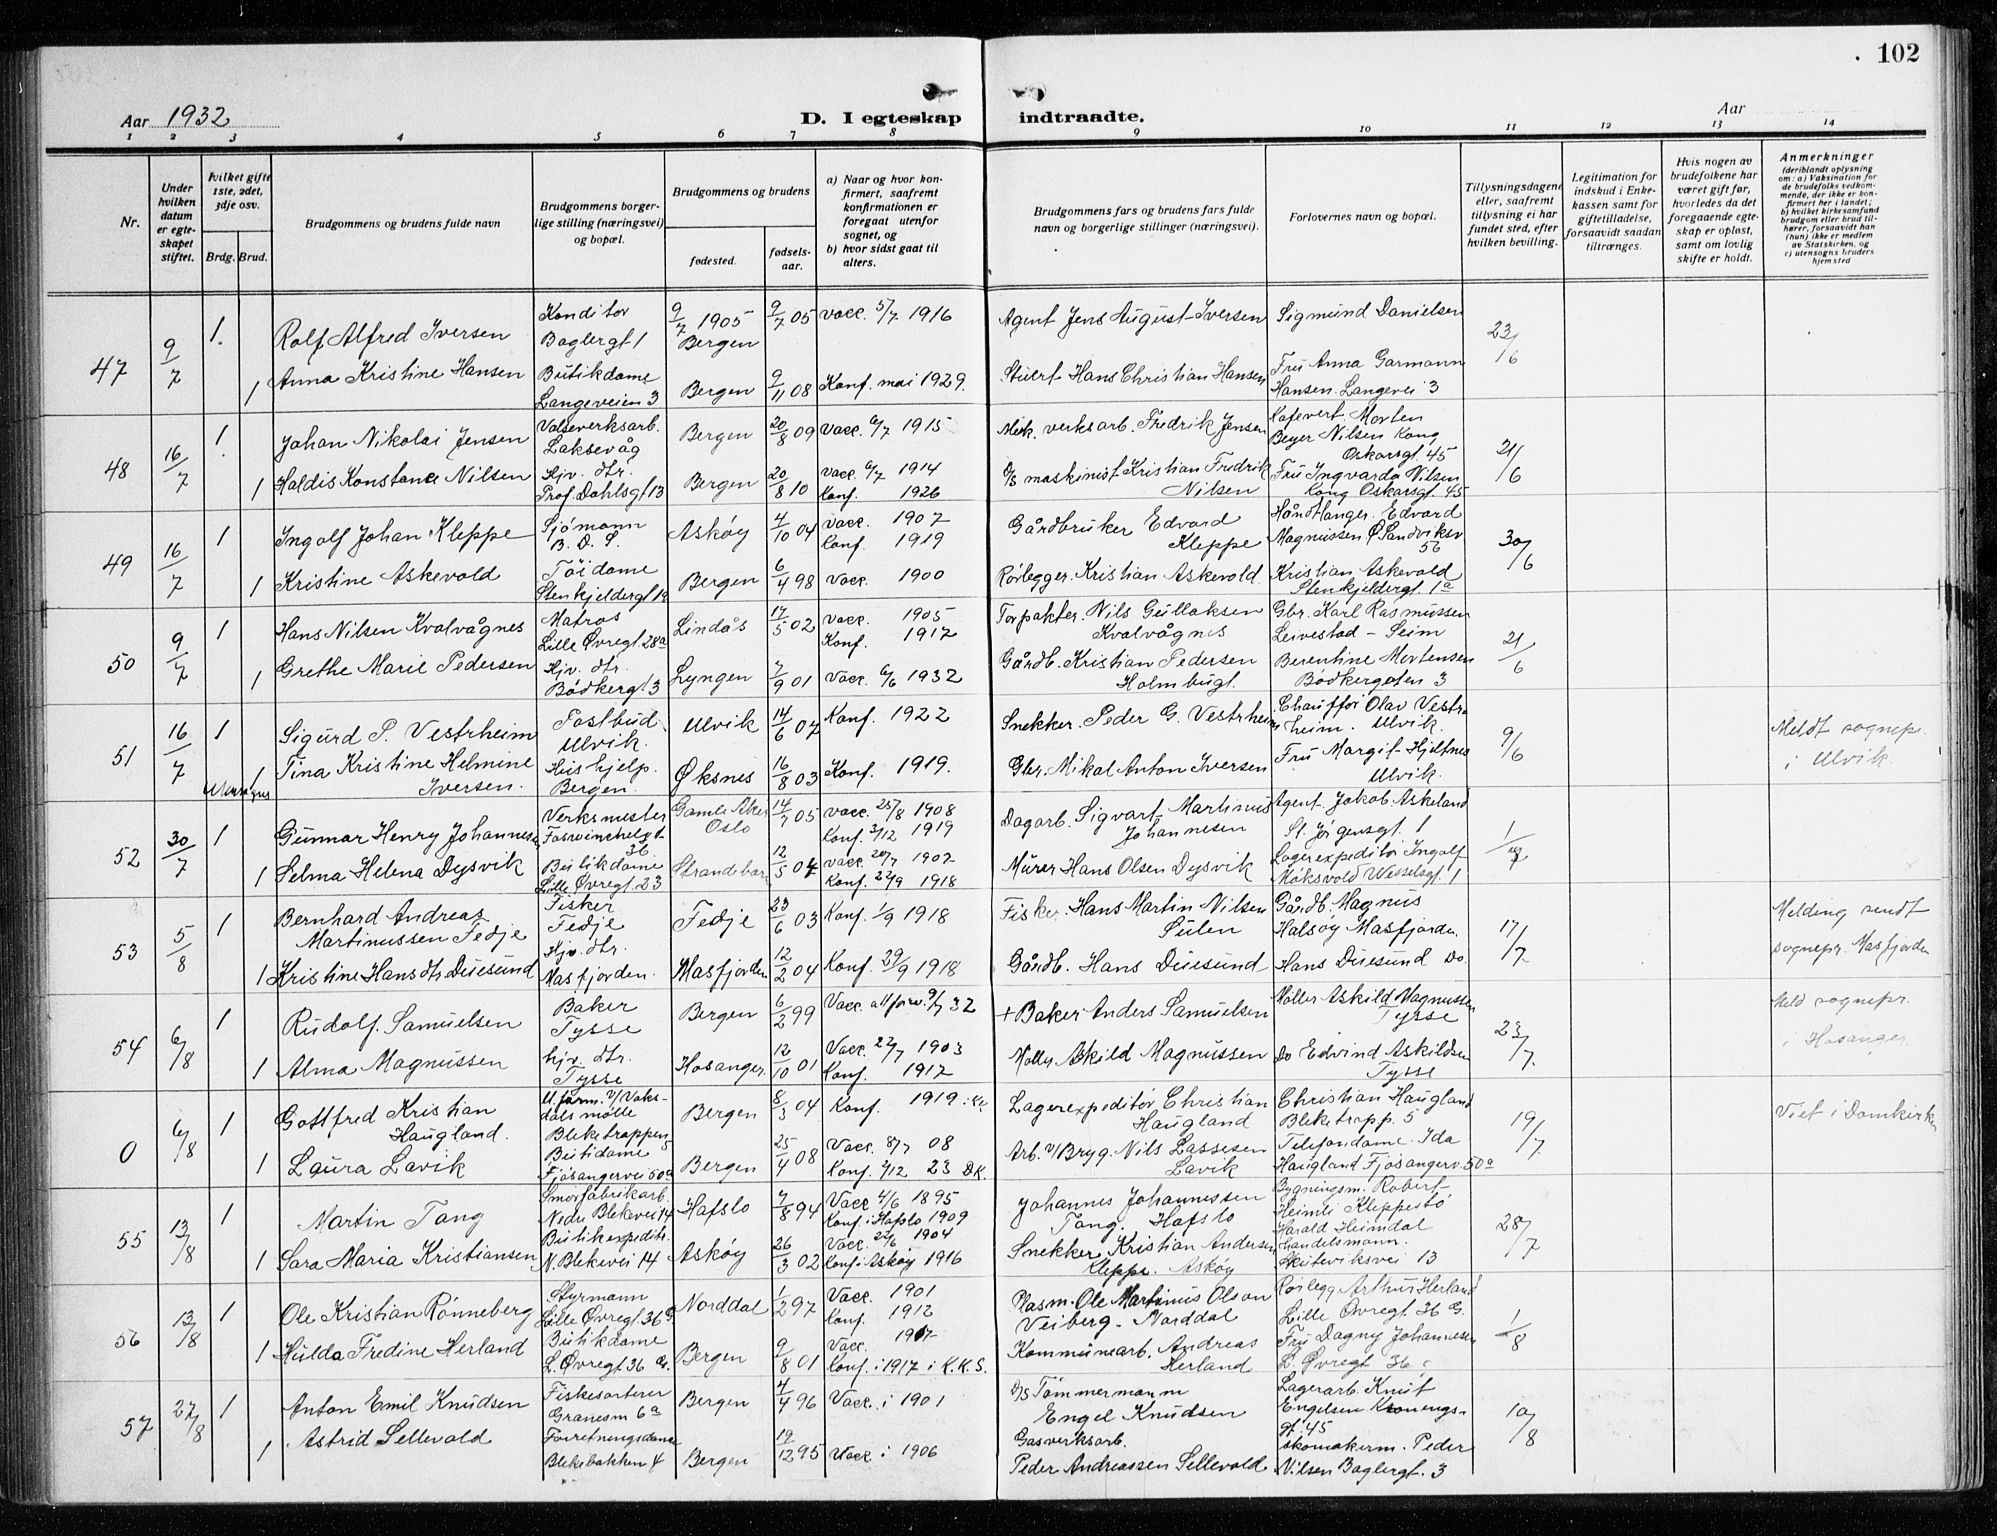 102
Aar 1932
D. I egteskap indtraadte.
Aar
1 2 3 4 5 6 7 8 9 10 11 12 13 14
Nr.
Under hvilken datum er egteskapet stiftet.
hvilket gifte 1ste, 2det, 3dje osv.
Brdg. Brud.
Brudgommens og brudens fulde navn
Brudgommens borgerlige stilling (næringsvei) og bopæl.
Brudgommens og brudens
fødested.
fødselsaar.
a) Naar og hvor konfirmert, saafremt konfirmationen er foregaat utenfor sognet, og
b) hvor sidst gaat til alters.
Brudgommens fars og brudens fars fulde navn og borgerlige stillinger (næringsvei).
Forlovernes navn og bopæl.
Tillysningsdagene eller, saafremt tillysning ei har fundet sted, efter hvilken bevilling.
Legitimation for indskud i Enkekassen samt for giftetilladelse, forsaavidt saadan tiltrænges.
Hvis nogen av brudefolkene har været gift før, hvorledes da det foregaaende egteskap er opløst, samt om lovlig skifte er holdt.
Anmerkninger
(deriblandt oplysning om: a) Vaksination for de brudefolks vedkommende, der ikke er konfirmert her i landet; b) hvilket kirkesamfund brudgom eller brud tilhører, forsaavidt han (hun) ikke er medlem av Statskirken, og c) utensogns bruders hjemsted
47 9/7 1. Rolf Alfred Iversen Konditor Baglergt 1 9/7 1905 Bergen 9/7 05 vacc. 5/7 1916 Agent Jens August Iversen Sigmund Danielsen 23/6
1 Anna Kristine Hansen Butikdame Langeveien 3 Bergen 9/11 08 Konf. mai 1929. Stuert Hans Christian Hansen Fru Anna Garmann Hansen. Langevei 3
48 16/7 1 Johan Nikolai Jensen Valseverksarb. Laksevåg Bergen 20/8 09 Vacc. 6/7 1915 Mek. verksarb. Fredrik Jensen Kafevert Morten Beyer Nilsen Kong Oskarsgt. 45 21/6
1 Haldis Konstance Nilsen Hjv. dtr. Prof. Dahlsgt 13 Bergen 20/8 10 Vacc. 6/7 1914 Konf. 1926 D/S maskinist Kristian Fredrik Nilsen Fru Ingvarda Nilsen Kong Oskarsgt. 45
49 16/7 1 Ingolf Johan Kleppe Sjömann B. D. S. Askøy 4/10 04 Vacc. 1907 Konf. 1919 Gårdbruker Edvard Kleppe Håndlanger. Edvard Magnussen Ø Sandviksv 56 30/6
1 Kristine Askevold Töidame Stenkjeldergt 1a Bergen 6/4 98 Vacc. 1900 Rörlegger. Kristian Askevold Kristian Askevold Stenkjeldergt. 1a
50 9/7 1 Hans Nilsen Kvalvågnes Matros Lille Øvregt. 28a Lindås 17/5 02 Vacc. 1905 Konf. 1917 Torpakter. Nils Gullaksen Kvalvågnes Gbr. Karl Rasmussen Leivestad - Seim 21/6
1 Grethe Marie Pedersen Hjv. dtr. Bödkergt 3 Lyngen 7/9 01 Vacc. 6/6 1932 Gårdb. Kristian Pedersen Holmbugt. Berentine Mortensen Bödkergaten 3
51 16/7 1 Sigurd P. Vestrheim Postbud. Ulvik. Ulvik 14/6 07 Konf. 1922 Snekker. Peder G. Vestrheim Chaufför Olav Vestrheim. Ulvik. 9/6 Meldt sognepr. i Ulvik.
1 Tina Kristine Helmine Iversen. Hushjelp. Bergen. Øksnes 16/8 03 Konf. 1919. Gbr. Mikal Anton Iversen Fru Margit Hjeltnes Ulvik.
52 30/7 1 Gunnar Henry Johannesen Verksmester 36 Gamle Aker Oslo 14/7 05 vacc. 25/8 1908 Konf. 2/12 1919 Dagarb. Sigvart Martinus Johannesen Agent. Jakob Askeland St. Jörgensgt. 1 1/7
1 Selma Helena Dysvik Butikdame Lille Øvregt. 23 Strandebarm 12/5 04 vacc. 20/7 1907 Konf. 22/9 1918 Murer Hans Olsen Dysvik Lagerexpeditör Ingolf Möksvold Wesselsgt. 1
53 5/8 1 Bernhard Andreas Martinussen Fedje Fisker Fedje Fedje 23/6 03 Konf. 1/9 1918 Fisker. Hans Martin Nilsen Sulen Gårdb. Magnus Halsøy Masfjorden 17/7 Melding sendt sognepr. Masfjorden
1 Kristine Hansdtr Duesund Hjv. dtr. Masfjorden. Masfjorden 12/2 04 Konf. 29/9 1918 Gårdb. Hans Duesund Hans Duesund Do.
54 6/8 1 Rudolf. Samuelsen Baker Tysse Bergen 6/2 99 + Baker Anders Samuelsen Möller Askild Magnussen Tysse 23/7. Meld sognepr. i Hosanger
1 Alma Magnussen hjv. dtr. Tysse Hosanger. 12/10 01 Vacc. 22/7 1903 Konf. 1917 Möller Askild Magnussen Do Edvind Askildsen Tysse
0 6/8 1 Gottfred Kristian Haugland. U.form. v/ Vaksdals mölle Bleketrappen 5 Bergen 8/3 04 Konf. 1919 Lagerexpeditör Christian Haugland Christian Haugland Bleketrapp. 5 19/7 Viet i Domkirken
1 Laura Lavik Butidame Fjösangervei 50a Bergen 25/4 08 Vacc. 8/7 08 Konf. 2/12 23 DK. Arb. v/Bryg. Nils Lassesen Lavik Telefondame. Ida Haugland Fjösangerv. 50a
55 13/8 1 Martin Tang Smörfabrikarb. Nedre Blekevei 14 Hafslo 7/8 94 Vacc 4/6 1895 Konf. i Hafslo 1909 Johannes Johannessen Tang. Hafslo Bygningsm. Robert Heimli Kleppestö 28/7
1 Sara Maria Kristiansen Butikexpeditr. N. Blekevei 14 Askøy 26/3 02 Vacc. 22/6 1904 Konf i Askøy 1916 Snekker Kristian Andersen Kleppe. Askøy Harald Heimdal handelsmann. Skuteviksvei 13
56 13/8 1 Ole Kristian Rönneberg Styrmann Lille Øvregt. 36 G Norddal 1/2 97 Vacc. 1901 Konf. 1912 Plasm. Ole Martinus Olson Veiberg - Norddal Rörlegg Arthur Herland Lille Øvregt 36 G. 1/8
1 Hulda Fredine Herland Butikdame L. Øvregt 36 G. Bergen 9/8 01 Vacc. 1907 Konf. i 1917 i K.K.S. Kommunearb. Andreas Herland Fru Dagny Johannesen L. Øvregt 36
57 27/8 1 Anton Emil Knudsen Fiskesorterer Granesm 6a Bergen 4/4 96 Vacc. i 1901 D/S Tömmermann Engel Knudsen Lagerarb. Knut Engelsen Kroningsgt. 45 10/8
1 Astrid Sellevold Forretningsdame Blekebakken 4 Bergen 19/12 95 Vacc i 1906 Gasverksarb. Peder Andreassen Sellevold Skomakerm. Peder Nilsen Baglergt. 3